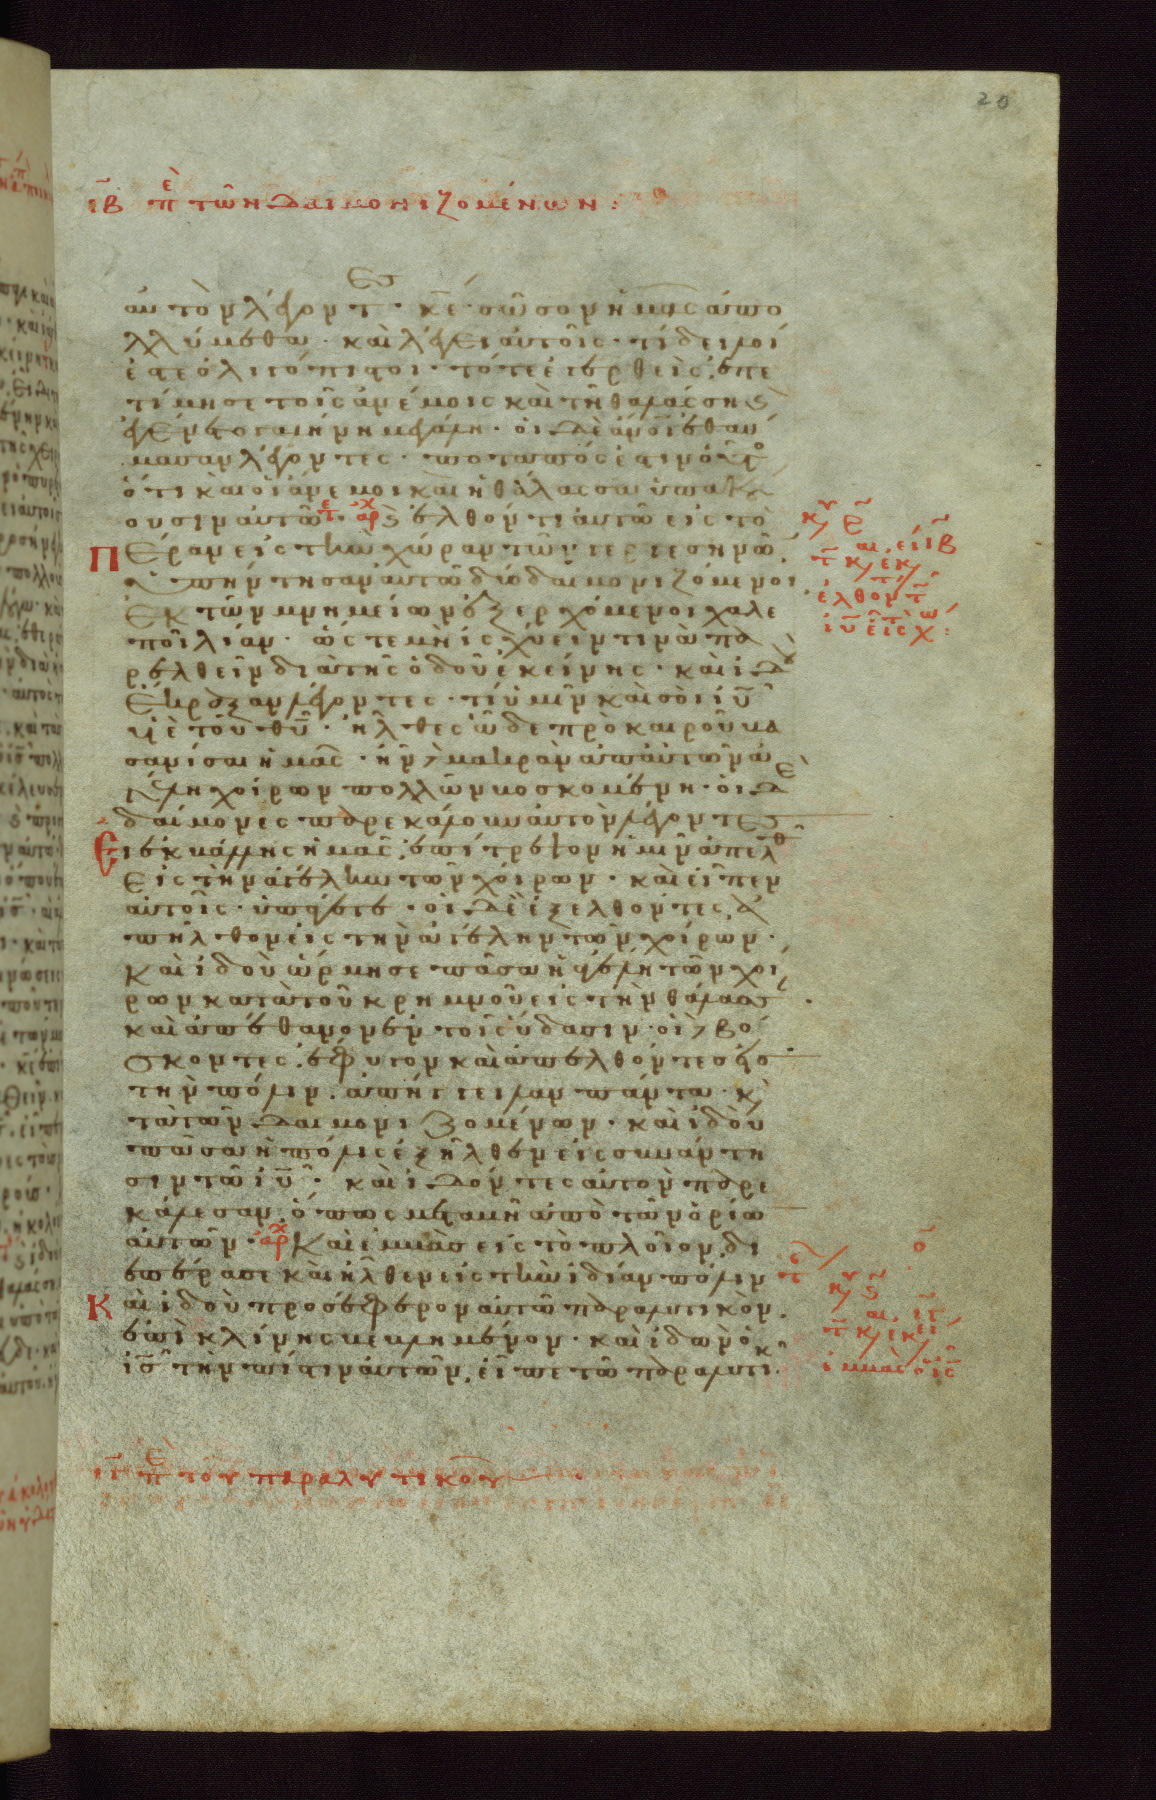 20
ιβ πε τῶν δαιμονιζομένων:
αυτὸν λέγοντες· κε σῶσον ἡμᾶς ἀπο
λλύμεθα· καὶ λέγει αὐτοῖς· τί δειλοί
ἐστε ὀλιγόπιστοι· τότε ἐγερθεὶς, ἐπε
τίμησε τοῖς ἀνέμοις καὶ τῆ θαλάσση καὶ
ἐγένετο γαλήνη μεγάλη· οἱ δὲ ἀνοι ἐθαύ
μασαν λέγοντες· ποταπός ἐστιν οὗτος
ὅτι καὶ οἱ ἄνεμοι καὶ ἡ θάλασσα ὑπακ
ουσιν αὐτῶ· τε αρχ καὶ ἐλθόντι αὐτῶ εἰς τὸ
Πέραν εἰς τὴν χώραν τῶν γεργεσηνῶ,
ὑπήντησαν αὐτῶ δύο δαιμονιζόμενοι
ἐκ τῶν μνημείων ἐξερχόμενοι χαλε
ποὶ λίαν· ὥστε μὴ ἰσχύειν τινὰ πα
ρελθεῖν διὰ τῆς ὁδοῦ ἐκείνης· καὶ ἰδοὺ
ἔκραξαν λέγοντες· τί ἡμῖν καὶ σοὶ ιυ
υἱὲ τοῦ θυ· ἦλθες ὧδε πρὸ καιροῦ βα
σανίσαι ἡμᾶς· ἦν δὲ μακρὰν ἀπ' αὐτῶν ἀ
γέλη χοίρων πολλῶν βοσκομένη· οἱ δὲ
δαίμονες παρεκάλουν αὐτὸν λέγοντες
Εἰ ἐκβάλλης ἡμᾶς, ἐπίτρεψον ἡμῖν ἀπελθεῖν
εἰς τὴν ἀγέλην τῶν χοίρων· καὶ εἶπεν
αὐτοῖς· ὑπάγετε· οἱ δὲ ἐξελθόντες, ἀ
πῆλθον εἰς τὴν ἀγέλην τῶν χοίρων·
Καὶ ἰδοὺ ὥρμησε πᾶσα ἡ ἀγέλη τῶν χοί
ρων κατὰ τοῦ κρημνοῦ εἰς τὴν θάλασσαν·
καὶ ἀπέθανον ἐν τοῖς ὕδασιν· οἱ δὲ βό
σκοντες, ἔφυγον καὶ ἀπελθόντες εἰς
τὴν πόλιν, ἀπήγγειλαν πάντα· καὶ
τὰ τῶν δαιμονιζομένων· καὶ ἰδοὺ
πᾶσα ἡ πόλις ἐξῆλθεν εἰς συνάντη
σιν τῶ ιυ· καὶ ἰδόντες αὐτὸν παρε
κάλεσαν, ὅπως μεταβῆ ἀπὸ τῶν ὁρίω
αὐτῶν· αρχ Καὶ ἐμβὰς εἰς τὸ πλοῖον, δι
επέρασε καὶ ἦλθεν εἰς τὴν ἰδίαν πόλιν
Καὶ ἰδοὺ προσέφερον αὐτῶ παραλυτικὸν,
ἐπὶ κλίνης βεβλημένον· καὶ ἰδὼν ὁ
ις τὴν πίστιν αὐτῶν, εἶπε τῶ παραλυτικῶ.
ιγ πε τοῦ παραλυτικοῦ